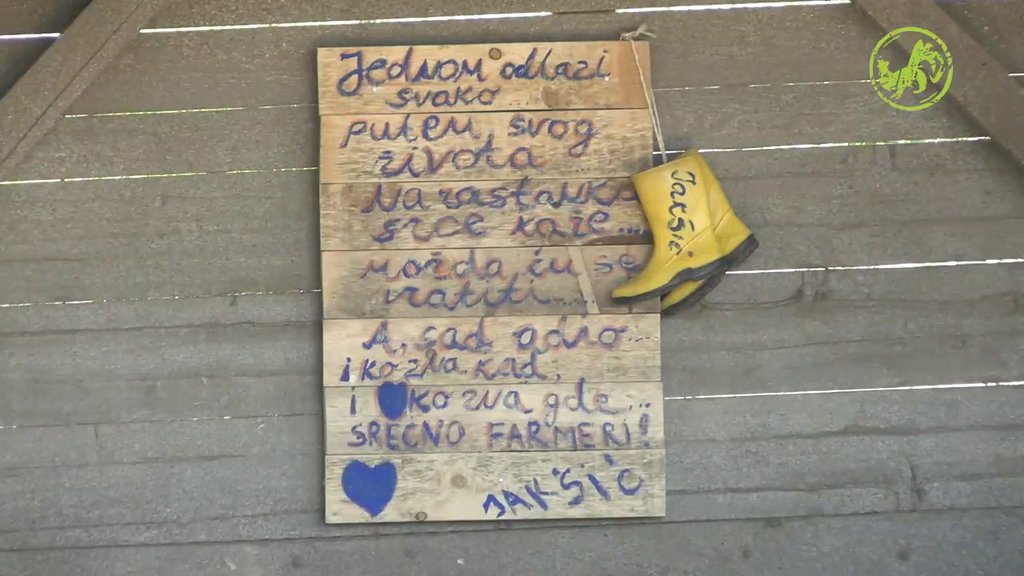 Jednom odlazi
svako
putem, svog
života
Na rastanku
srce kaže...
možda ću se
vratiti...
A, sad adio....
i ko zna kad,
i ko zna gde...
SREĆNO FARMERI!
JAKŠIĆ
Jakšić